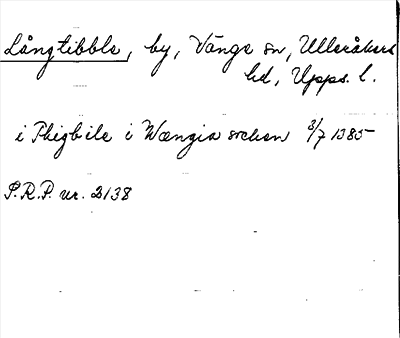 Långtibble, by, Vänge sn, Ulleråkers
hd, Upps. l.
i Thigbile i Wængia sochen 3/7 1385
S.R.P. nr. 2138